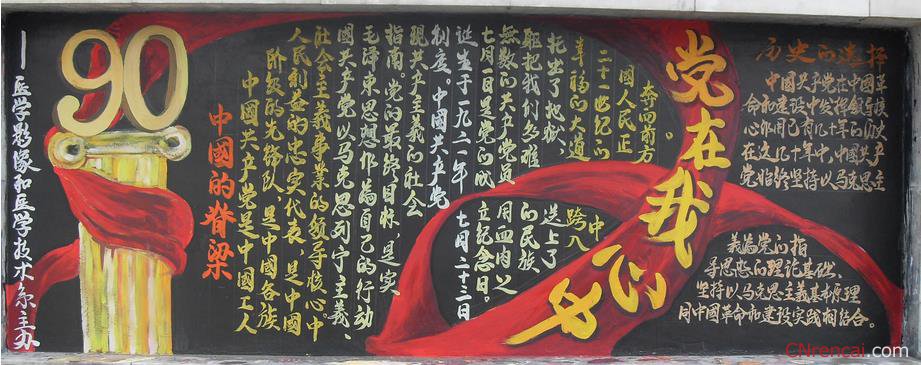 —医学影像和医学技术系主办
90
中國的脊梁
中國共产党是中國工人
阶级的先锋队，是中國各族
人民利益的忠实代表，是中國
社会主義事業的领导核心。中
國共产党以马克思列宁主義、
毛泽東思想作為自己的行动
指南。党的最终目标，是实
现共产主義的社会
制度。中國共产党
诞生于一九二一年七月二十三日
七月一日是党的成立纪念日。
無數的共产党员用血肉之
躯把我们多难的民族
托出了地狱、送上了
幸福的大道跨入
二十一世纪的中
國人民正
奔向前方
。
党在我心中
历史的选择
中國共产党在中國革
命和建设中发挥领导核
心作用已有几十年的历史
在这几十年中，中國共产
党始终坚持以马克思主
義為党的指
导思想的理论基础、
坚持以马克思主義基本原理
同中國革命和建设实践相结合。
CNrencai.com